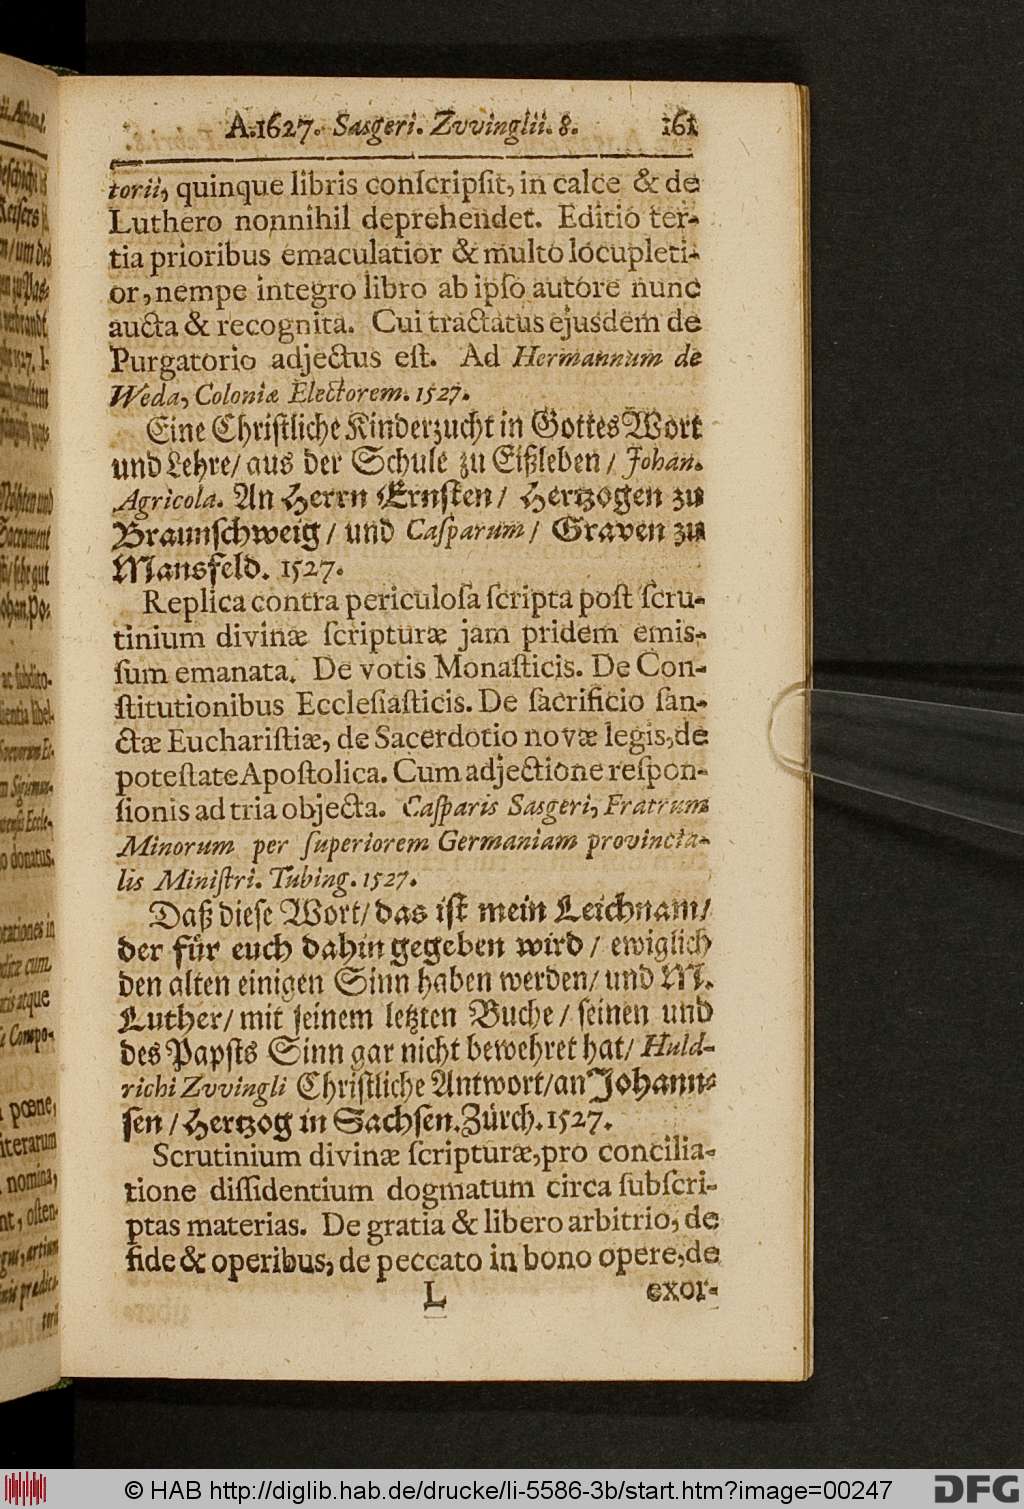 A.1627. Sasgeri. Zvvinglii. 8. 161
torii, quinque libris conſcripſit, in calce & de
Luthero nonnihil deprehendet. Editio ter-
tia prioribus emaculatior & multo locupleti-
or, nempe integro libro ab ipſo autore nunc
aucta & recognita. Cui tractatus ejusdem de
Purgatorio adjectus eſt. Ad Hermannum de
Weda, Coloniæ Electorem. 1527.
Eine Chriſtliche Kinderzucht in Gottes Wort
und Lehre/ aus der Schule zu Eißleben/ Johan.
Agricola. An Herrn Ernſten/ Hertzogen zu
Braunſchweig/ und Caſparum/ Graven zu
Mansfeld. 1527.
Replica contra periculoſa ſcripta poſt ſcru-
tinium divinæ ſcripturæ jam pridem emis-
ſum emanata. De votis Monaſticis. De Con-
ſtitutionibus Eccleſiaſticis. De ſacrificio ſan-
ctæ Euchariſtiæ, de Sacerdotio novæ legis, de
poteſtate Apoſtolica. Cum adjectione reſpon-
ſionis ad tria objecta. Caſparis Sasgeri, Fratrum
Minorum per ſuperiorem Germaniam provincia-
lis Miniſtri. Tubing. 1527.
Daß dieſe Wort/ das iſt mein Leichnam/
der für euch dahin gegeben wird/ ewiglich
den alten einigen Sinn haben werden/ und M.
Luther/ mit ſeinem letzten Buche/ ſeinen und
des Papſts Sinn gar nicht bewehret hat/ Huld-
richi Zvvingli Chriſtliche Antwort/ an Johann-
ſen/ Hertzog in Sachſen. Zürch. 1527.
Scrutinium divinæ ſcripturæ, pro concilia-
tione diſſidentium dogmatum circa ſubſcri-
ptas materias. De gratia & libero arbitrio, de
fide & operibus, de peccato in bono opere, de
L exor-
© HAB http://diglib.hab.de/drucke/li-5586-3b/start.htm?image=00247
DFG